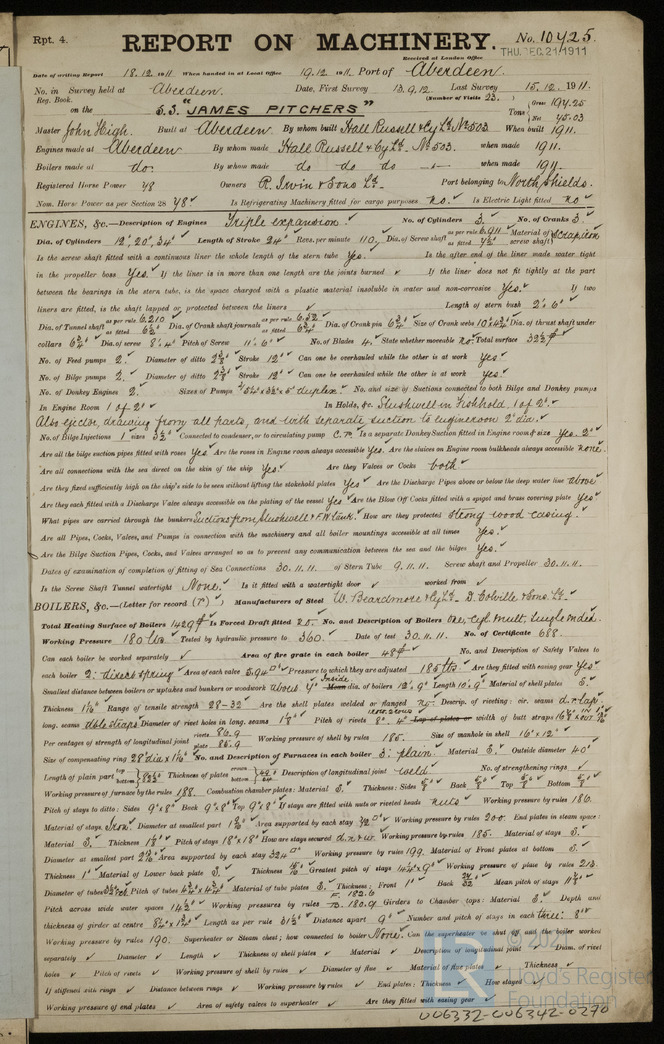 Rpt. 4.
REPORT ON MACHINERY.
No. 10425.
THU. DEC. 21 1911
Received at London Office
Date of writing Report 18.12.1911 When handed in at Local Office 19.12.1911. Port of Aberdeen.
No. in Survey held at Aberdeen. Date, First Survey 13.9.12 Last Survey 15.12.1911.
Reg. Book. (Number of Visits 23.)
on the S.S. "JAMES PITCHERS" Tons Gross 194.25
Net 75.03
Master John Haigh. Built at Aberdeen By whom built Hall Russell & Cy Ld. No 503 When built 1911.
Engines made at Aberdeen By whom made Hall Russell & Cy Ld. No 503. when made 1911.
Boilers made at do. By whom made do do do when made 1911.
Registered Horse Power 48 Owners R. Irvin & Sons Ld. Port belonging to North Shields.
Nom. Horse Power as per Section 28 48 Is Refrigerating Machinery fitted for cargo purposes no. Is Electric Light fitted no
ENGINES, &c.—Description of Engines Triple expansion. No. of Cylinders 3. No. of Cranks 3.
Dia. of Cylinders 12", 20", 34" Length of Stroke 24" Revs. per minute 110, Dia. of Screw shaft as per rule 6.911 as fitted Material of screw shaft Scrap iron
Is the screw shaft fitted with a continuous liner the whole length of the stern tube Yes. Is the after end of the liner made water tight
in the propeller boss Yes. If the liner is in more than one length are the joints burned If the liner does not fit tightly at the part
between the bearings in the stern tube, is the space charged with a plastic material insoluble in water and non-corrosive Yes. If two
liners are fitted, is the shaft lapped or protected between the liners Length of stern bush 2'. 6"
Dia. of Tunnel shaft as per rule 6.210 as fitted Dia. of Crank shaft journals as per rule 6.52 as fitted Dia. of Crank pin Size of Crank webs Dia. of thrust shaft under
collars Dia. of screw 8'. 4" Pitch of Screw 11'. 6" No. of Blades 4. State whether moveable no. Total surface
No. of Feed pumps 2. Diameter of ditto Stroke 12" Can one be overhauled while the other is at work Yes
No. of Bilge pumps 2. Diameter of ditto Stroke 12" Can one be overhauled while the other is at work Yes.
No. of Donkey Engines 2. Sizes of Pumps duplex. No. and size of Suctions connected to both Bilge and Donkey pumps
In Engine Room 1 of 2" In Holds, &c. Slushwell in Fishhold, 1 of 2".
Also ejector, drawing from all parts, and with separate suction to engineroom 2" dia.
No. of Bilge Injections 1 sizes Connected to condenser, or to circulating pump C.P. Is a separate Donkey Suction fitted in Engine room & size Yes. 2"
Are all the bilge suction pipes fitted with roses Yes Are the roses in Engine room always accessible Yes. Are the sluices on Engine room bulkheads always accessible none.
Are all connections with the sea direct on the skin of the ship Yes. Are they Valves or Cocks both
Are they fixed sufficiently high on the ship's side to be seen without lifting the stokehold plates Yes Are the Discharge Pipes above or below the deep water line above
Are they each fitted with a Discharge Valve always accessible on the plating of the vessel Yes Are the Blow Off Cocks fitted with a spigot and brass covering plate Yes
What pipes are carried through the bunkers Suctions from Slushwell & F.W. tank. How are they protected Strong wood casing.
Are all Pipes, Cocks, Valves, and Pumps in connection with the machinery and all boiler mountings accessible at all times Yes.
Are the Bilge Suction Pipes, Cocks, and Valves arranged so as to prevent any communication between the sea and the bilges Yes.
Dates of examination of completion of fitting of Sea Connections 30.11.11. of Stern Tube 9.11.11. Screw shaft and Propeller 30.11.11.
Is the Screw Shaft Tunnel watertight None. Is it fitted with a watertight door worked from
BOILERS, &c.—(Letter for record (r)) Manufacturers of Steel W. Beardmore & Cy Ld. D. Colville & Sons Ld.
Total Heating Surface of Boilers 1429 Is Forced Draft fitted no. No. and Description of Boilers One, Cyl. Mult. Single ended.
Working Pressure 180 lbs. Tested by hydraulic pressure to 360. Date of test 30.11.11. No. of Certificate 688.
Can each boiler be worked separately Area of fire grate in each boiler 48 No. and Description of Safety Valves to
each boiler 2: direct spring Area of each valve 5.94 Pressure to which they are adjusted 185 lbs Are they fitted with easing gear Yes
Smallest distance between boilers or uptakes and bunkers or woodwork about 4" Inside dia. of boilers 12'. 9" Length 10'. 9" Material of shell plates S.
Thickness Range of tensile strength 28-32 Are the shell plates welded or flanged no. Descrip. of riveting: cir. seams d.r. lap.
long. seams dble straps Diameter of rivet holes in long. seams Pitch of rivets Lap of plates or width of butt straps
Per centages of strength of longitudinal joint rivets plate 85.9 Working pressure of shell by rules 185. Size of manhole in shell 16" x 12"
Size of compensating ring No. and Description of Furnaces in each boiler 3: plain. Material S. Outside diameter 40"
Length of plain part top bottom Thickness of plates crown bottom Description of longitudinal joint weld No. of strengthening rings
Working pressure of furnace by the rules 188. Combustion chamber plates: Material S. Thickness: Sides Back Top Bottom
Pitch of stays to ditto: Sides 9" x 8" Back Top If stays are fitted with nuts or riveted heads nuts Working pressure by rules 180.
Material of stays Iron. Diameter at smallest part Area supported by each stay 72 Working pressure by rules 200. End plates in steam space:
Material S. Thickness Pitch of stays 18" x 18" How are stays secured Working pressure by rules 185. Material of stays S.
Diameter at smallest part Area supported by each stay 324 Working pressure by rules 199. Material of Front plates at bottom S.
Thickness 1" Material of Lower back plate S. Thickness Greatest pitch of stays Working pressure of plate by rules 213.
Diameter of tubes Pitch of tubes Material of tube plates S. Thickness: Front 1" Back Mean pitch of stays
Pitch across wide water spaces Working pressures by rules F. 182.6 B. 180.9 Girders to Chamber tops: Material S. Depth and
thickness of girder at centre Length as per rule Distance apart 9" Number and pitch of stays in each three: 8"
Working pressure by rules 190. Superheater or Steam chest; how connected to boiler None. Can the superheater be shut off and the boiler worked
separately Diameter Length Thickness of shell plates Material Description of longitudinal joint Diam. of rivet
holes Pitch of rivets Working pressure of shell by rules Diameter of flue Material of flue plates Thickness
If stiffened with rings Distance between rings Working pressure by rules End plates: Thickness How stayed
Working pressure of end plates Area of safety valves to superheater Are they fitted with easing gear
Lloyd's Register
Foundation
006332-006342-0270